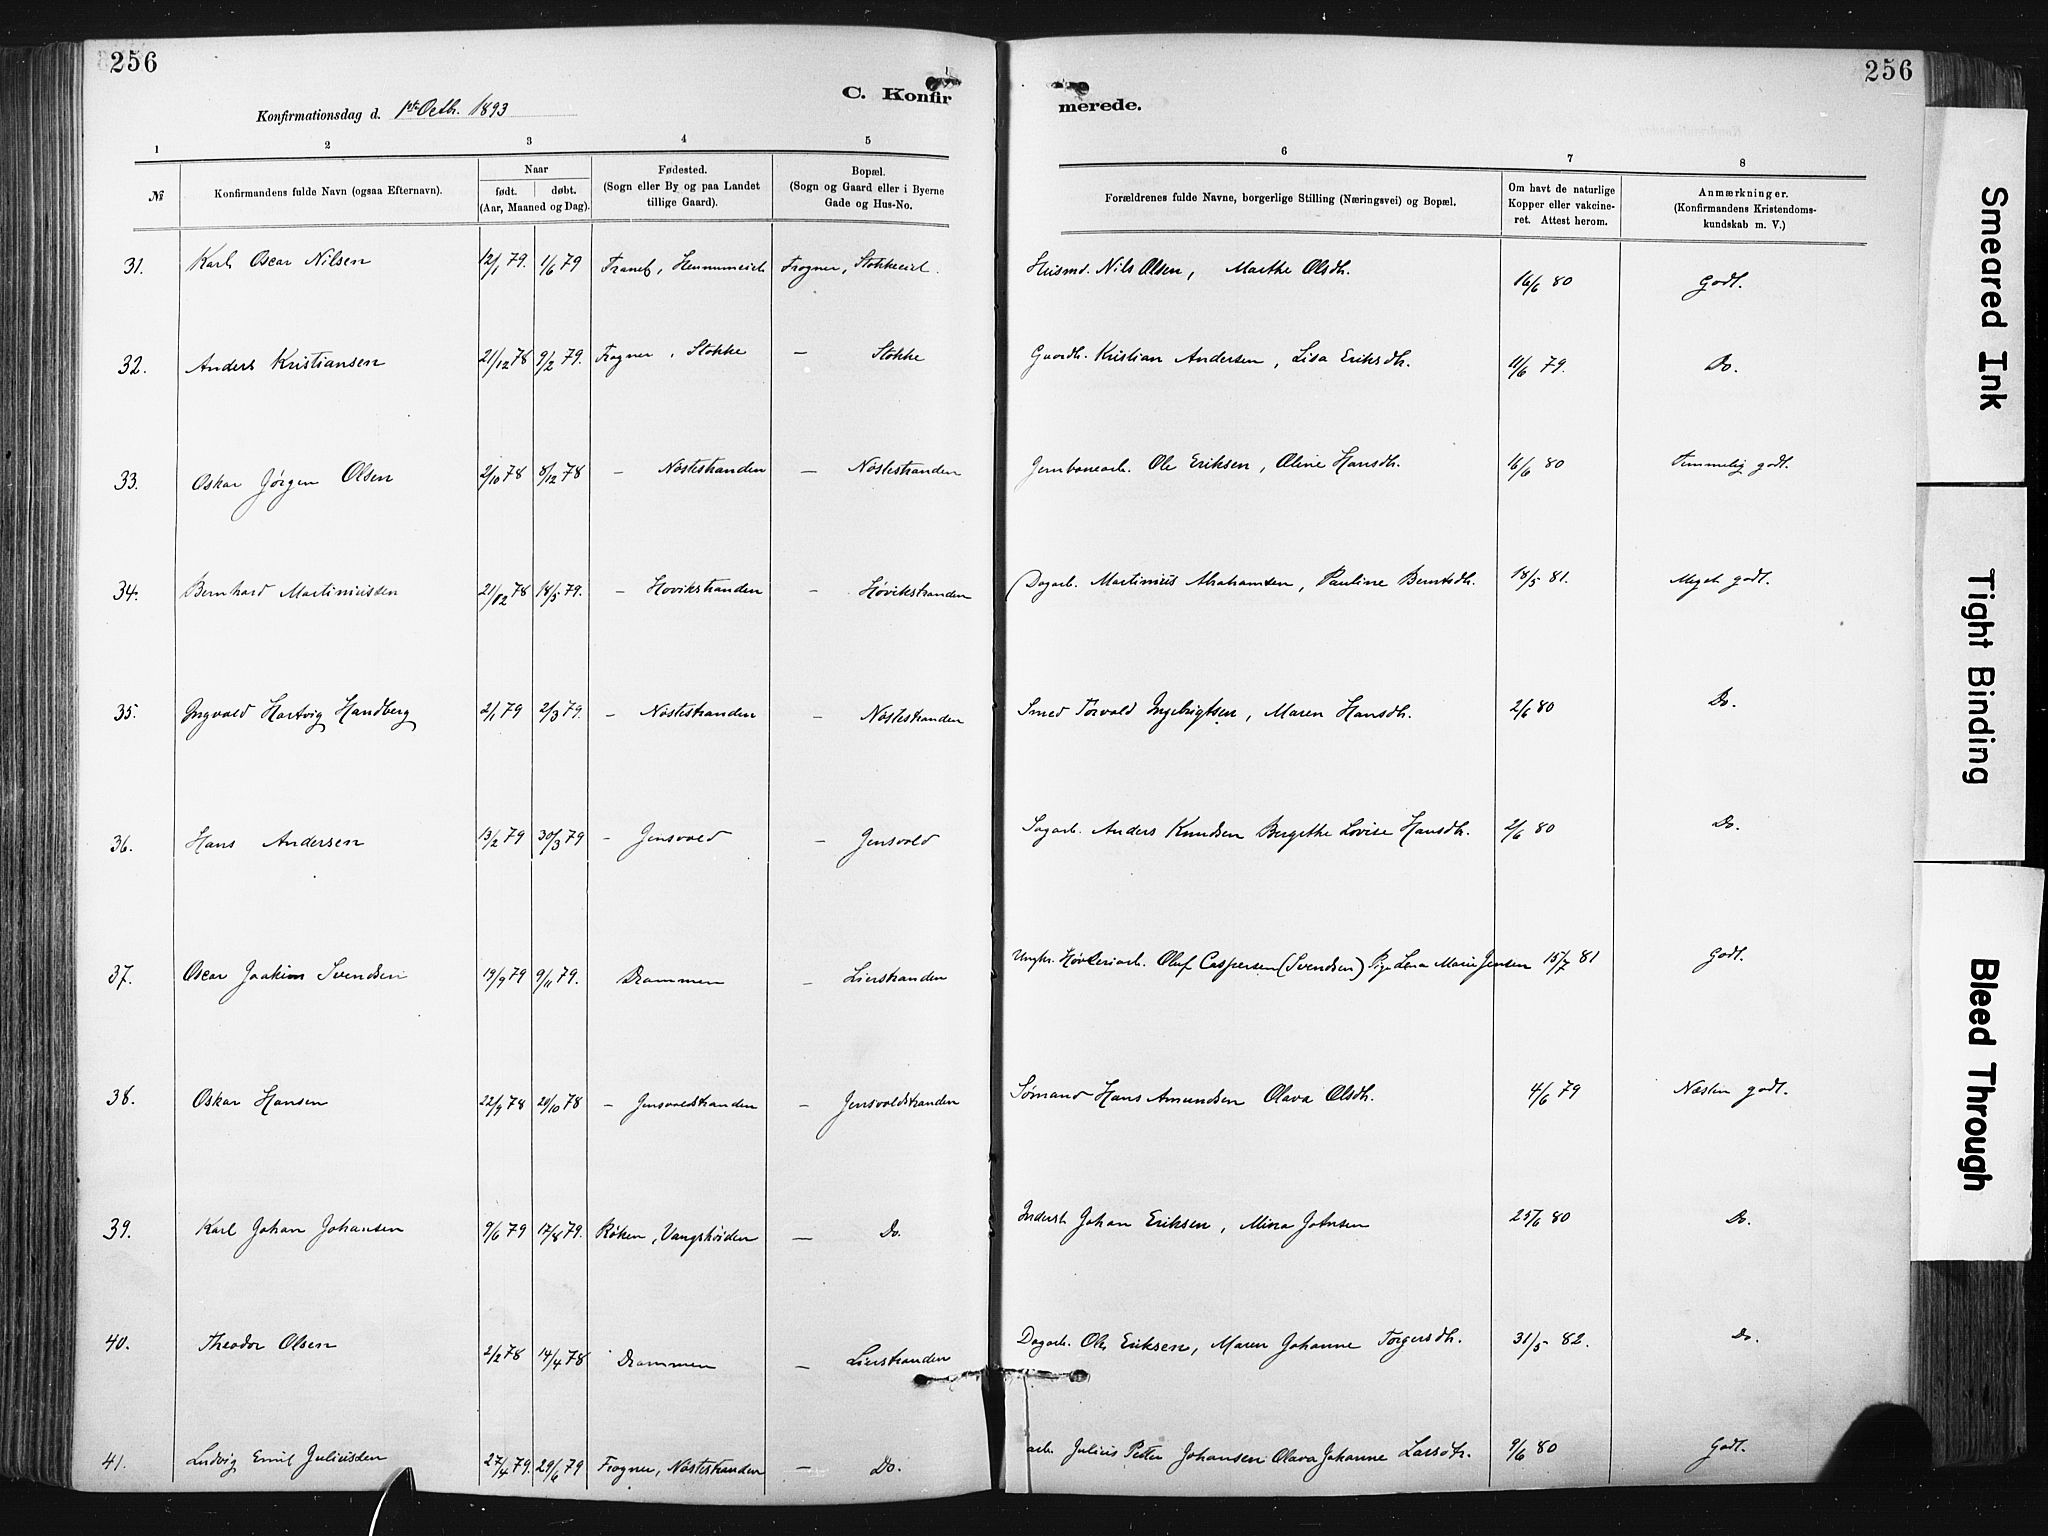 256
256
C. Konfirmerede.
Konfirmationsdag d. 1ste Octbr. 1893
1 2 3 4 5 6 7 8
№ Konfirmandens fulde Navn (ogsaa Efternavn). Naar født. døbt. (Aar, Maaned og Dag). Fødested. (Sogn eller By og paa Landet tillige Gaard). Bopæl. (Sogn og Gaard eller i Byerne Gade og Hus-No. Forældrenes fulde Navne, borgerlige Stilling (Næringsvei) og Bopæl. Om havt de naturlige Kopper eller vakcineret. Attest herom. Anmærkninger. (Konfirmandens Kristendomskundskab m. V.)
31. Karl Oscar Nilsen 12/1 79. 1/6 79 Tranby, Hennumeiet Frogner, Stokkeeiet. Husmd. Nils Olsen, Marthe Olsdtr. 16/6 80 Godt.
32. Anders Kristiansen 21/12 78 9/2 79. Frogner, Stokke — Stokke Gaardb. Kristian Andersen, Lisa Eriksdtr. 11/6 79. Do.
33. Oskar Jørgen Olsen 2/10 78 8/12 78 — Nøstestranden — Nøstestranden Jernbanearb. Ole Eriksen, Oline Hansdtr. 16/6 80 Temmelig godt.
34. Bernhard Martiniussen 21/12 78 18/5 79. — Høvikstranden — Høvikstranden Dagarb. Martinius Abrahamsen, Pauline Berntsdtr. 18/5 81. Meget godt.
35. Ingvald Hartvig Handberg 2/1 79 2/3 79. — Nøstestranden — Nøstestranden Smed Torvald Ingebrigtsen, Maren Hansdtr. 2/6 80 Do.
36. Hans Andersen 13/2 79 30/3 79 — Gjensvold — Gjensvold Sagarb. Anders Knudsen Bergithe Lovise Hansdtr. 2/6 80 Do.
37. Oscar Joakim Svendsen 19/9 79 9/11 79. Drammen — Lierstranden Ungkr. Høvleriarb. Oluf Caspersen (Svendsen) Pige Lena Marie Jensen 15/7 81 Godt.
38. Oskar Hansen 22/9 78 20/10 78 — Gjensvoldstranden — Gjensvoldstranden Sømand Hans Amundsen Olava Olsdtr. 4/6 79 Næsten godt.
39. Karl Johan Johansen 9/6 79 17/8 79. Røken, Vangshøiden — Do. Inderst Johan Eriksen, Mina Johnsen 25/6 80 Do.
40. Theodor Olsen 2/2 78 14/4 78 Drammen — Lierstranden Dagarb. Ole Eriksen, Maren Johanne Torgersdtr. 31/5 82. Do.
41. Ludvig Emil Juliussen 27/4 79. 29/6 79 Frogner, Nøstestranden — Do. arb. Julius Petter Johansen Olava Johanne Larsdtr. 9/6 80 Godt.
Smeared Ink
Tight Binding
Bleed Through